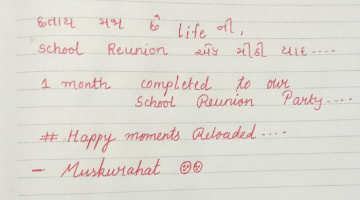 મજા છે life ની,
School Reunion એક મીઠી યાદ....
1 month completed to our
School Reunion Party....
# Happy moments Reloaded....
- Muskurahat